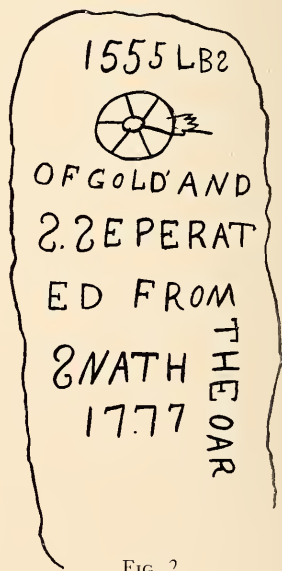 1555 LBS
OF GoLD'AND
S. SEPERAT
ED FROM
THE OAR
SNATH
17.77
FIG. 2